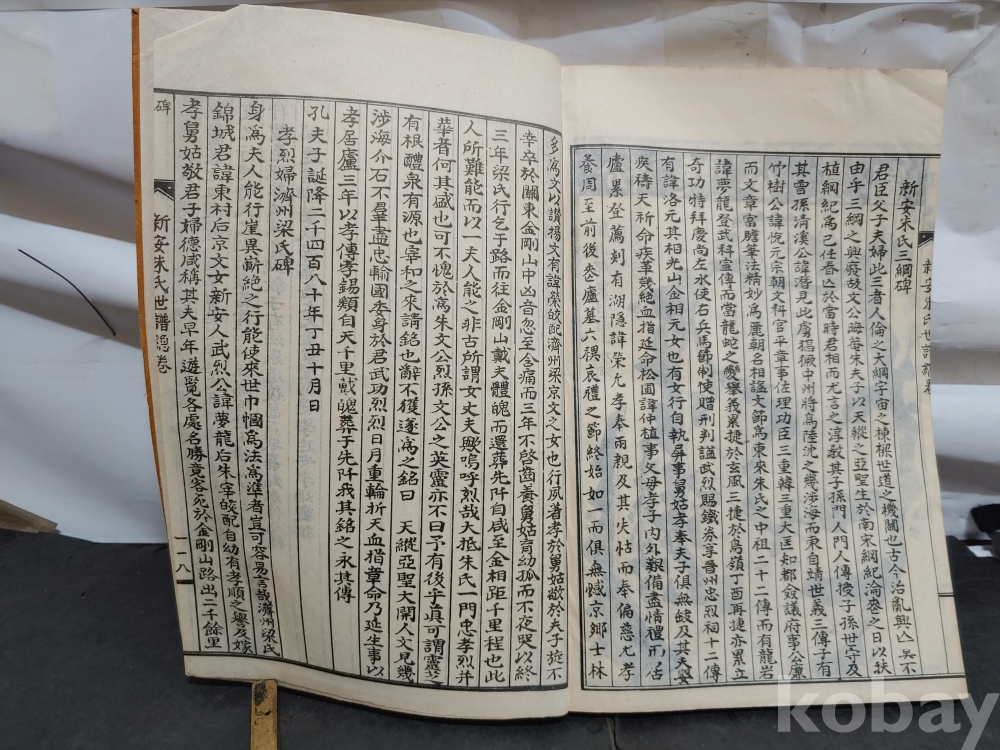 新安朱氏三綱碑
君臣父子夫婦此三者人倫之大綱宇宙之棟樑世道之機關也古今治亂興亡吳不
由乎三綱之興廢故文公晦菴朱夫子以天縱之亞聖生於南宋綱紀淪斁之日以扶
植綱紀爲己任香亡於當時君相而尤言之淳敎其子孫門人門人傳授子孫世守及
其曾孫淸溪公諱潛見此虜猖獗中州將爲陸沈之幾涉海而東自靖世義三傳子有
竹樹公諱悅元宗朝文科官平章事佐理功臣三重韓三重大匡知都僉議府事公兼
而文章富贍筆法精妙爲麗朝名相謚文節爲東來朱氏之中祖二十二傳而有龍岩
諱夢龍登武科宣傳而當龍蛇之變擧義累捷於玄風三捷於鳥嶺丁酉再捷亦累立
奇功特拜慶尙左水使右兵馬節制使贈刑判謚武烈賜鐵券享晋州忠烈祠十二傳
有諱洛元其相光山金相元女也有女行自執井事舅姑孝奉夫子俱無故及其夫嬰
疾禱天祈命疾革幾絶血指延命松圃諱仲植事父母孝子內外艱備盡情禮而居
廬累登薦剡有湖隱諱榮允孝奉兩親及其失怙而奉偏慈尤孝
養周至前後叅廬墓六禩哀禮之節終始如一而俱無憾京鄕士林
多爲文以讃揚又有諱榮皎配濟州梁京文之女也行夙著孝於舅姑敬於夫子旋不
幸卒於關東金剛山中凶音忽至含痛而三年不啓齒養舅姑育幼孤而不夜哭以終
三年梁氏行乞于路而往金剛山戴夫體魄而還葬先阡自咸至金相距千里程也此
人所難能而以一夫人能之非古所謂女丈夫歟嗚呼烈哉大抵朱氏一門忠孝烈幷
華者何其盛也可不愧於爲朱文公孫文公之英靈亦不曰予有後乎眞可謂靈芝
有根醴泉有源也宰和之來請銘也辭不獲遂爲之銘曰 天縱亞聖大開人文見幾
涉海介石不羣盡忠輸國委身於君武功烈烈日月重輪祈天血指章命乃延生事以
孝居廬三年以孝傳孝錫類自天千里戴魄葬于先阡我其銘之永其傳
孔夫子誕降二千四百八十年丁丑十月日
孝烈婦濟州梁氏碑
身爲夫人能行崖異斷絶之行能使來世巾幗爲法爲準者豈可容易言哉濟州梁氏
錦城君諱東村后京文女新安人武烈公諱夢龍后朱宰皎配自幼有孝順之譽及嫁
孝舅姑敬君子婦德咸稱其夫早年遊覽各處名勝竟客死於金剛山路出二千餘里
碑
新安朱氏世譜總卷
一八